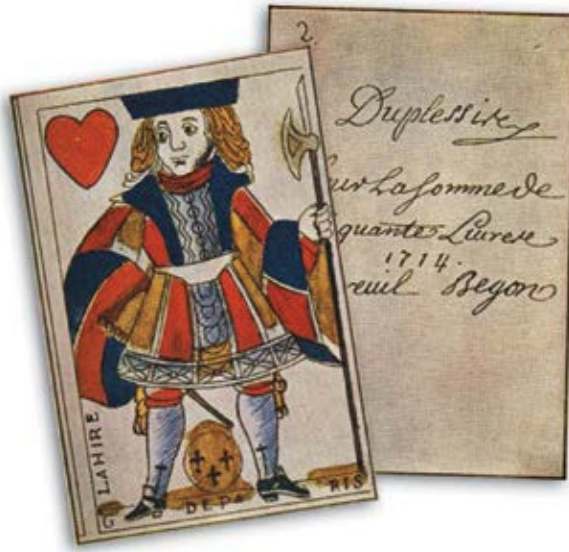 LAHIRE
DE PA RIS
2
Duplessis
ur La somme de
quante Livres
1714.
reuil Begon